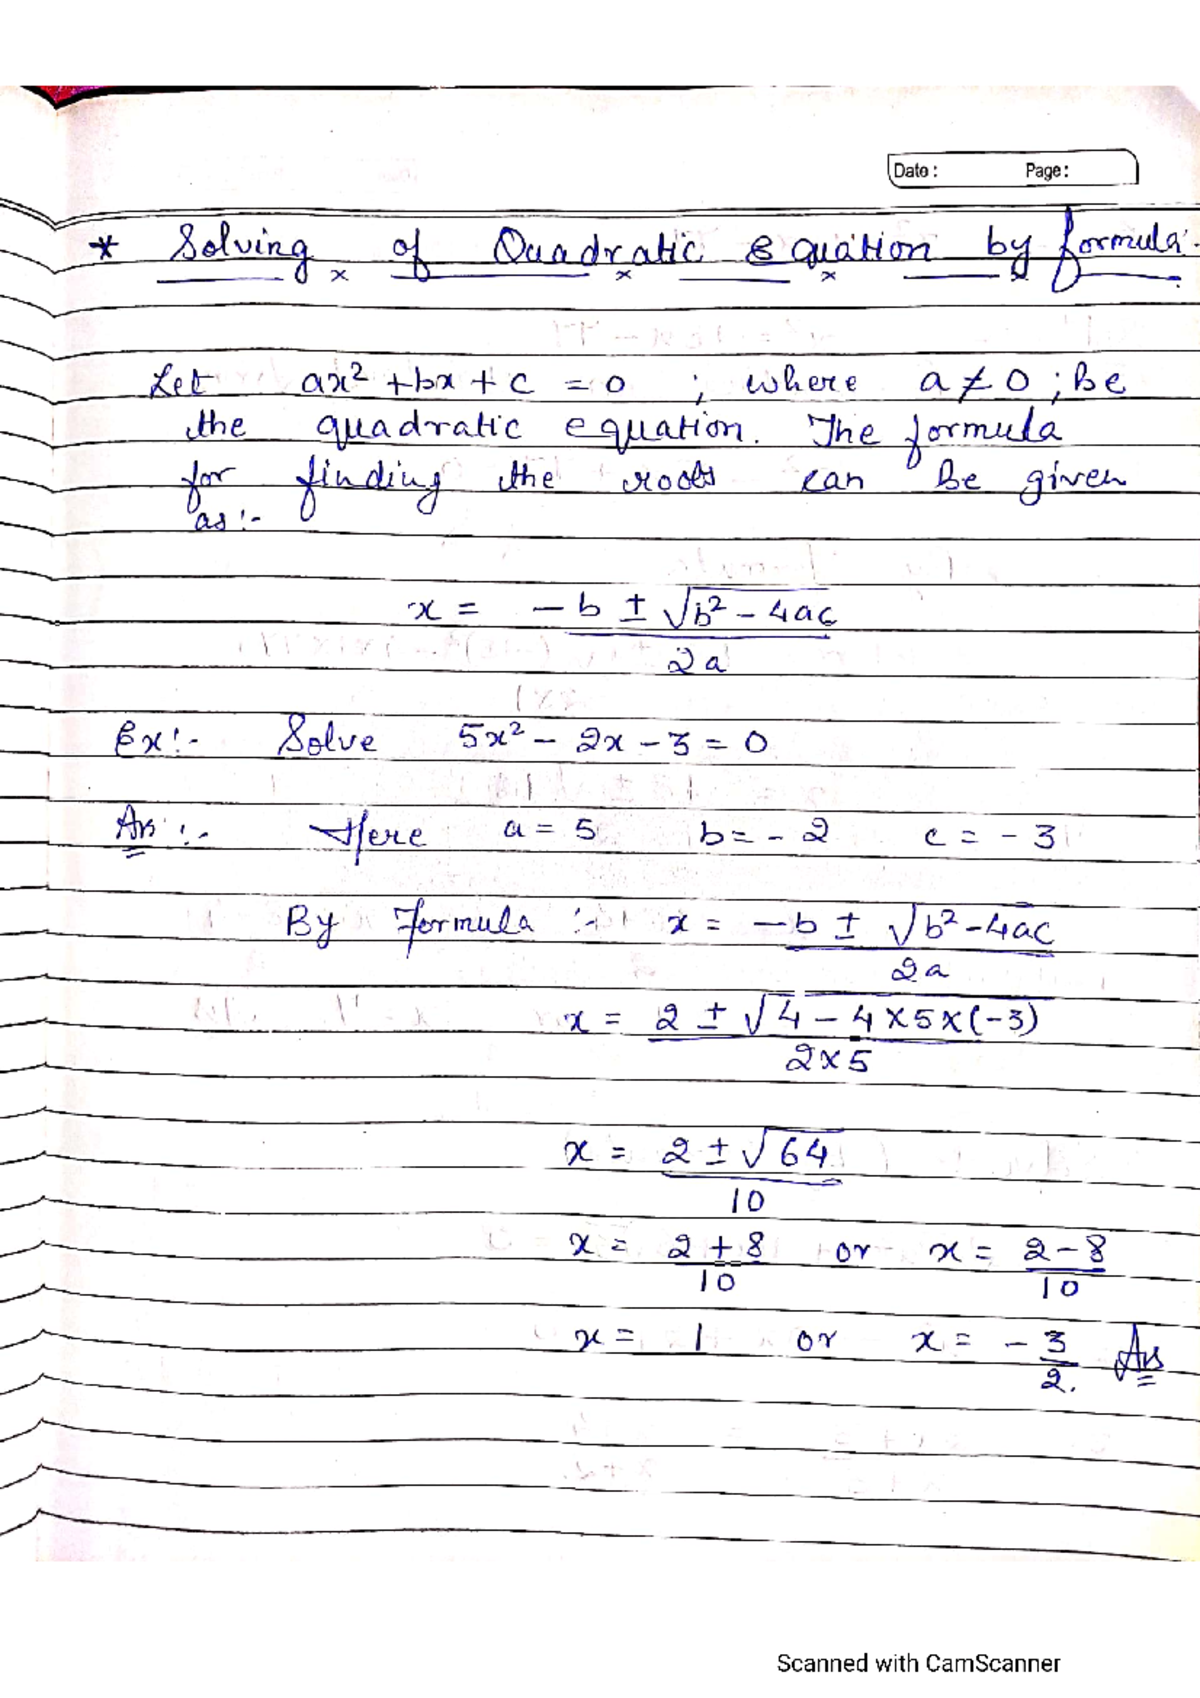 Date : Page :
* Solving of Quadratic Equation by formula.
Let ax² + bx + c = 0 ; where a ≠ 0 ; Be
the quadratic equation. The formula
for finding the roots can Be given
as :-
x = -b ± √b² - 4ac
2a
Ex :- Solve 5x² - 2x - 3 = 0
Ans :- Here a = 5 b = - 2 c = - 3
By Formula :- x = -b ± √b² - 4ac
2a
x = 2 ± √4 - 4 × 5 × (-3)
2 × 5
x = 2 ± √64
10
x = 2 + 8 or x = 2 - 8
10 10
x = 1 or x = - 3 Ans
2.
Scanned with CamScanner